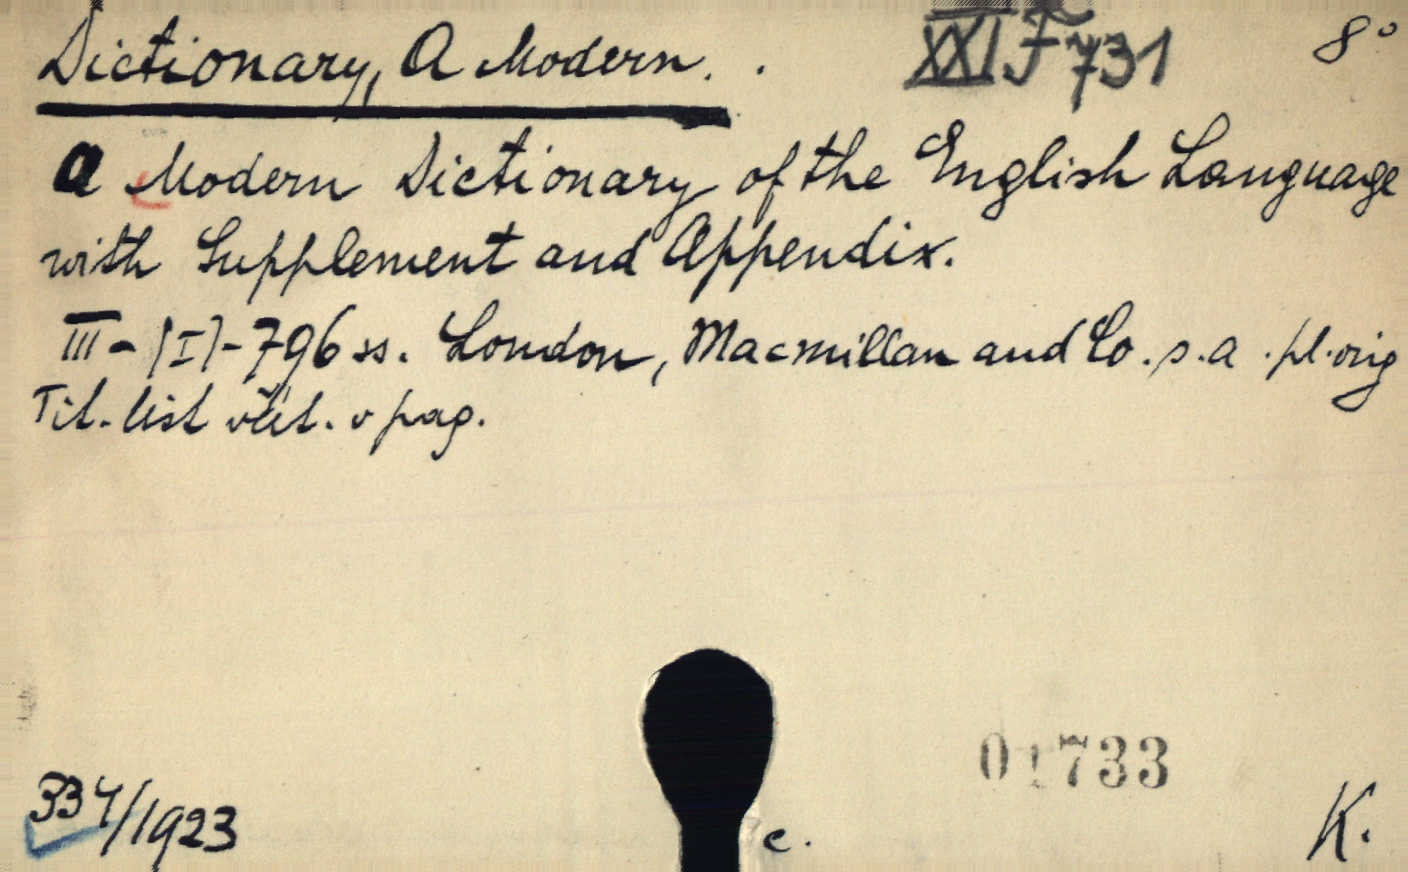 Dictionary, A Modern. . XXI F 731 8°
A Modern Dictionary of the English Language
with Supplement and Appendix.
III-(I)-796 ss. London, Macmillan and Co. s.a. pl. orig
Tit. list včít. v pag.
01733
334/1923 c. K.